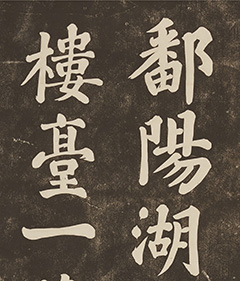 鄱陽湖
樓臺一